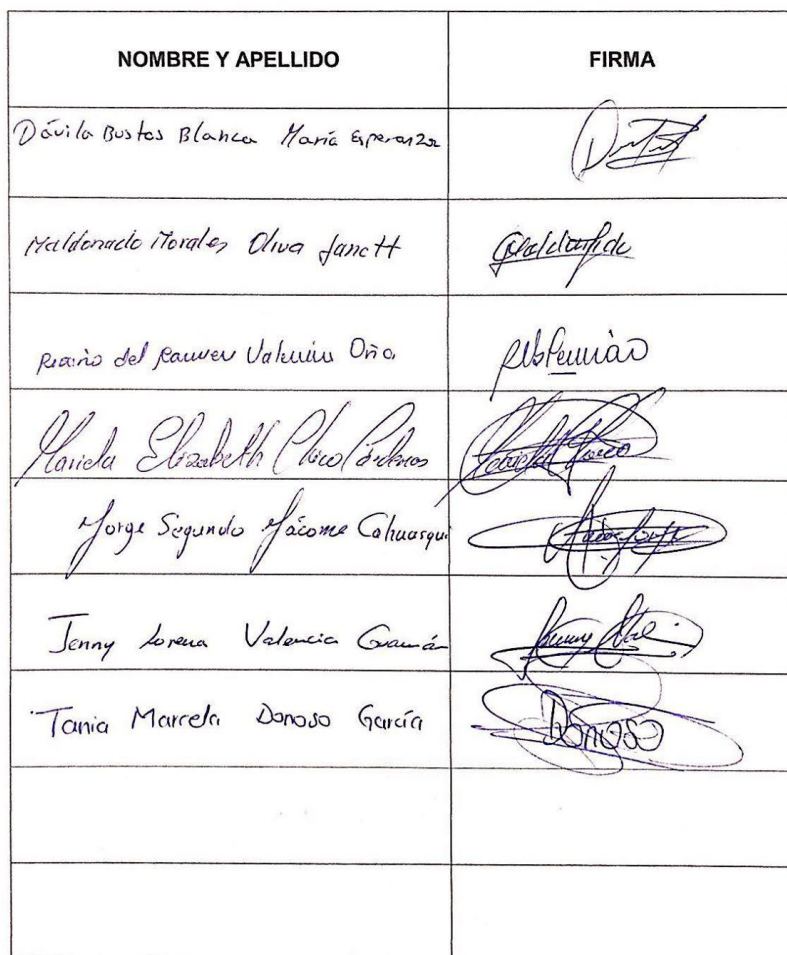 NOMBRE Y APELLIDO FIRMA
Dávila Bustos Blanca María Esperanza
Maldonado Morales Oliva Janett
del Oña
Mariela Elizabeth Chico Cárdenas
Jorge Segundo Jácome Cahuasqui
Jenny Lorena Valencia Guamán
Tania Marcela Donoso García Donoso